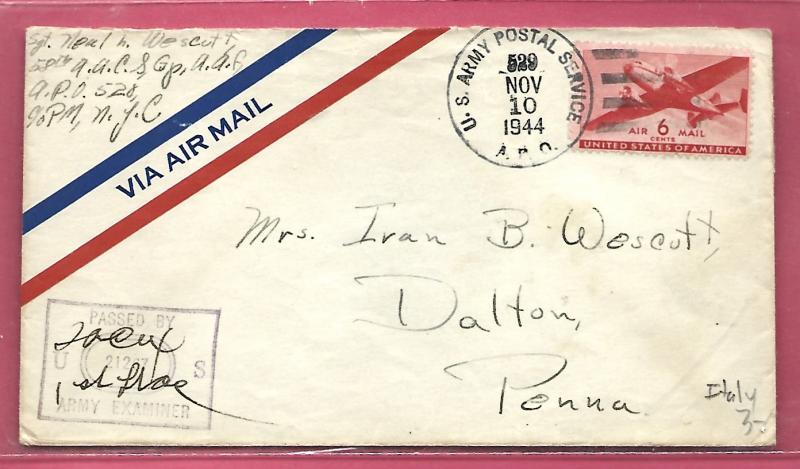 Sgt. Neal L. Wescott,
58th A.A.C.S Gp, A.A.F,
A.P.O. 528,
% PM, N.Y.C
VIA AIR MAIL
U. S. ARMY POSTAL SERVICE
529
NOV
10
1944
A. P. O.
AIR 6 MAIL
CENTS
UNITED STATES OF AMERICA
Mrs. Ivan B. Wescott,
Dalton,
Penna.
PASSED BY
U S
ARMY EXAMINER
Italy
3-